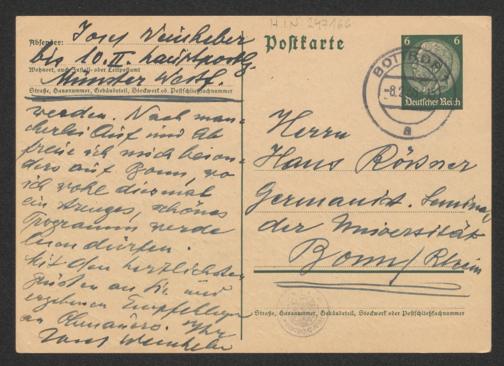 H.I.N. 247166
Absender: Josef Weinheber
bis 10. II. Hauptpostlg.
Wohnort, auch Zustell- oder Leitpostamt
Münster Westf.
Straße, Hausnummer, Gebäudeteil, Stockwerk od. Postschließfachnummer
werden. Nach man-
cherlei Auf und Ab
freue ich mich beson-
ders auf Bonn, wo
ich wohl diesmal
ein schönes
Programm werde
lesen dürfen.
Mit den herzlichsten
Grüßen an Sie und
ergebenen Empfehlungen
an Ihr
Josef Weinheber
Postkarte
6 6
Deutsches Reich
BOTTROP
-8.2.
a
Herrn
Hans Rößner
Germanist. Seminar
der Universität
Bonn/Rhein
Straße, Hausnummer, Gebäudeteil, Stockwerk oder Postschließfachnummer